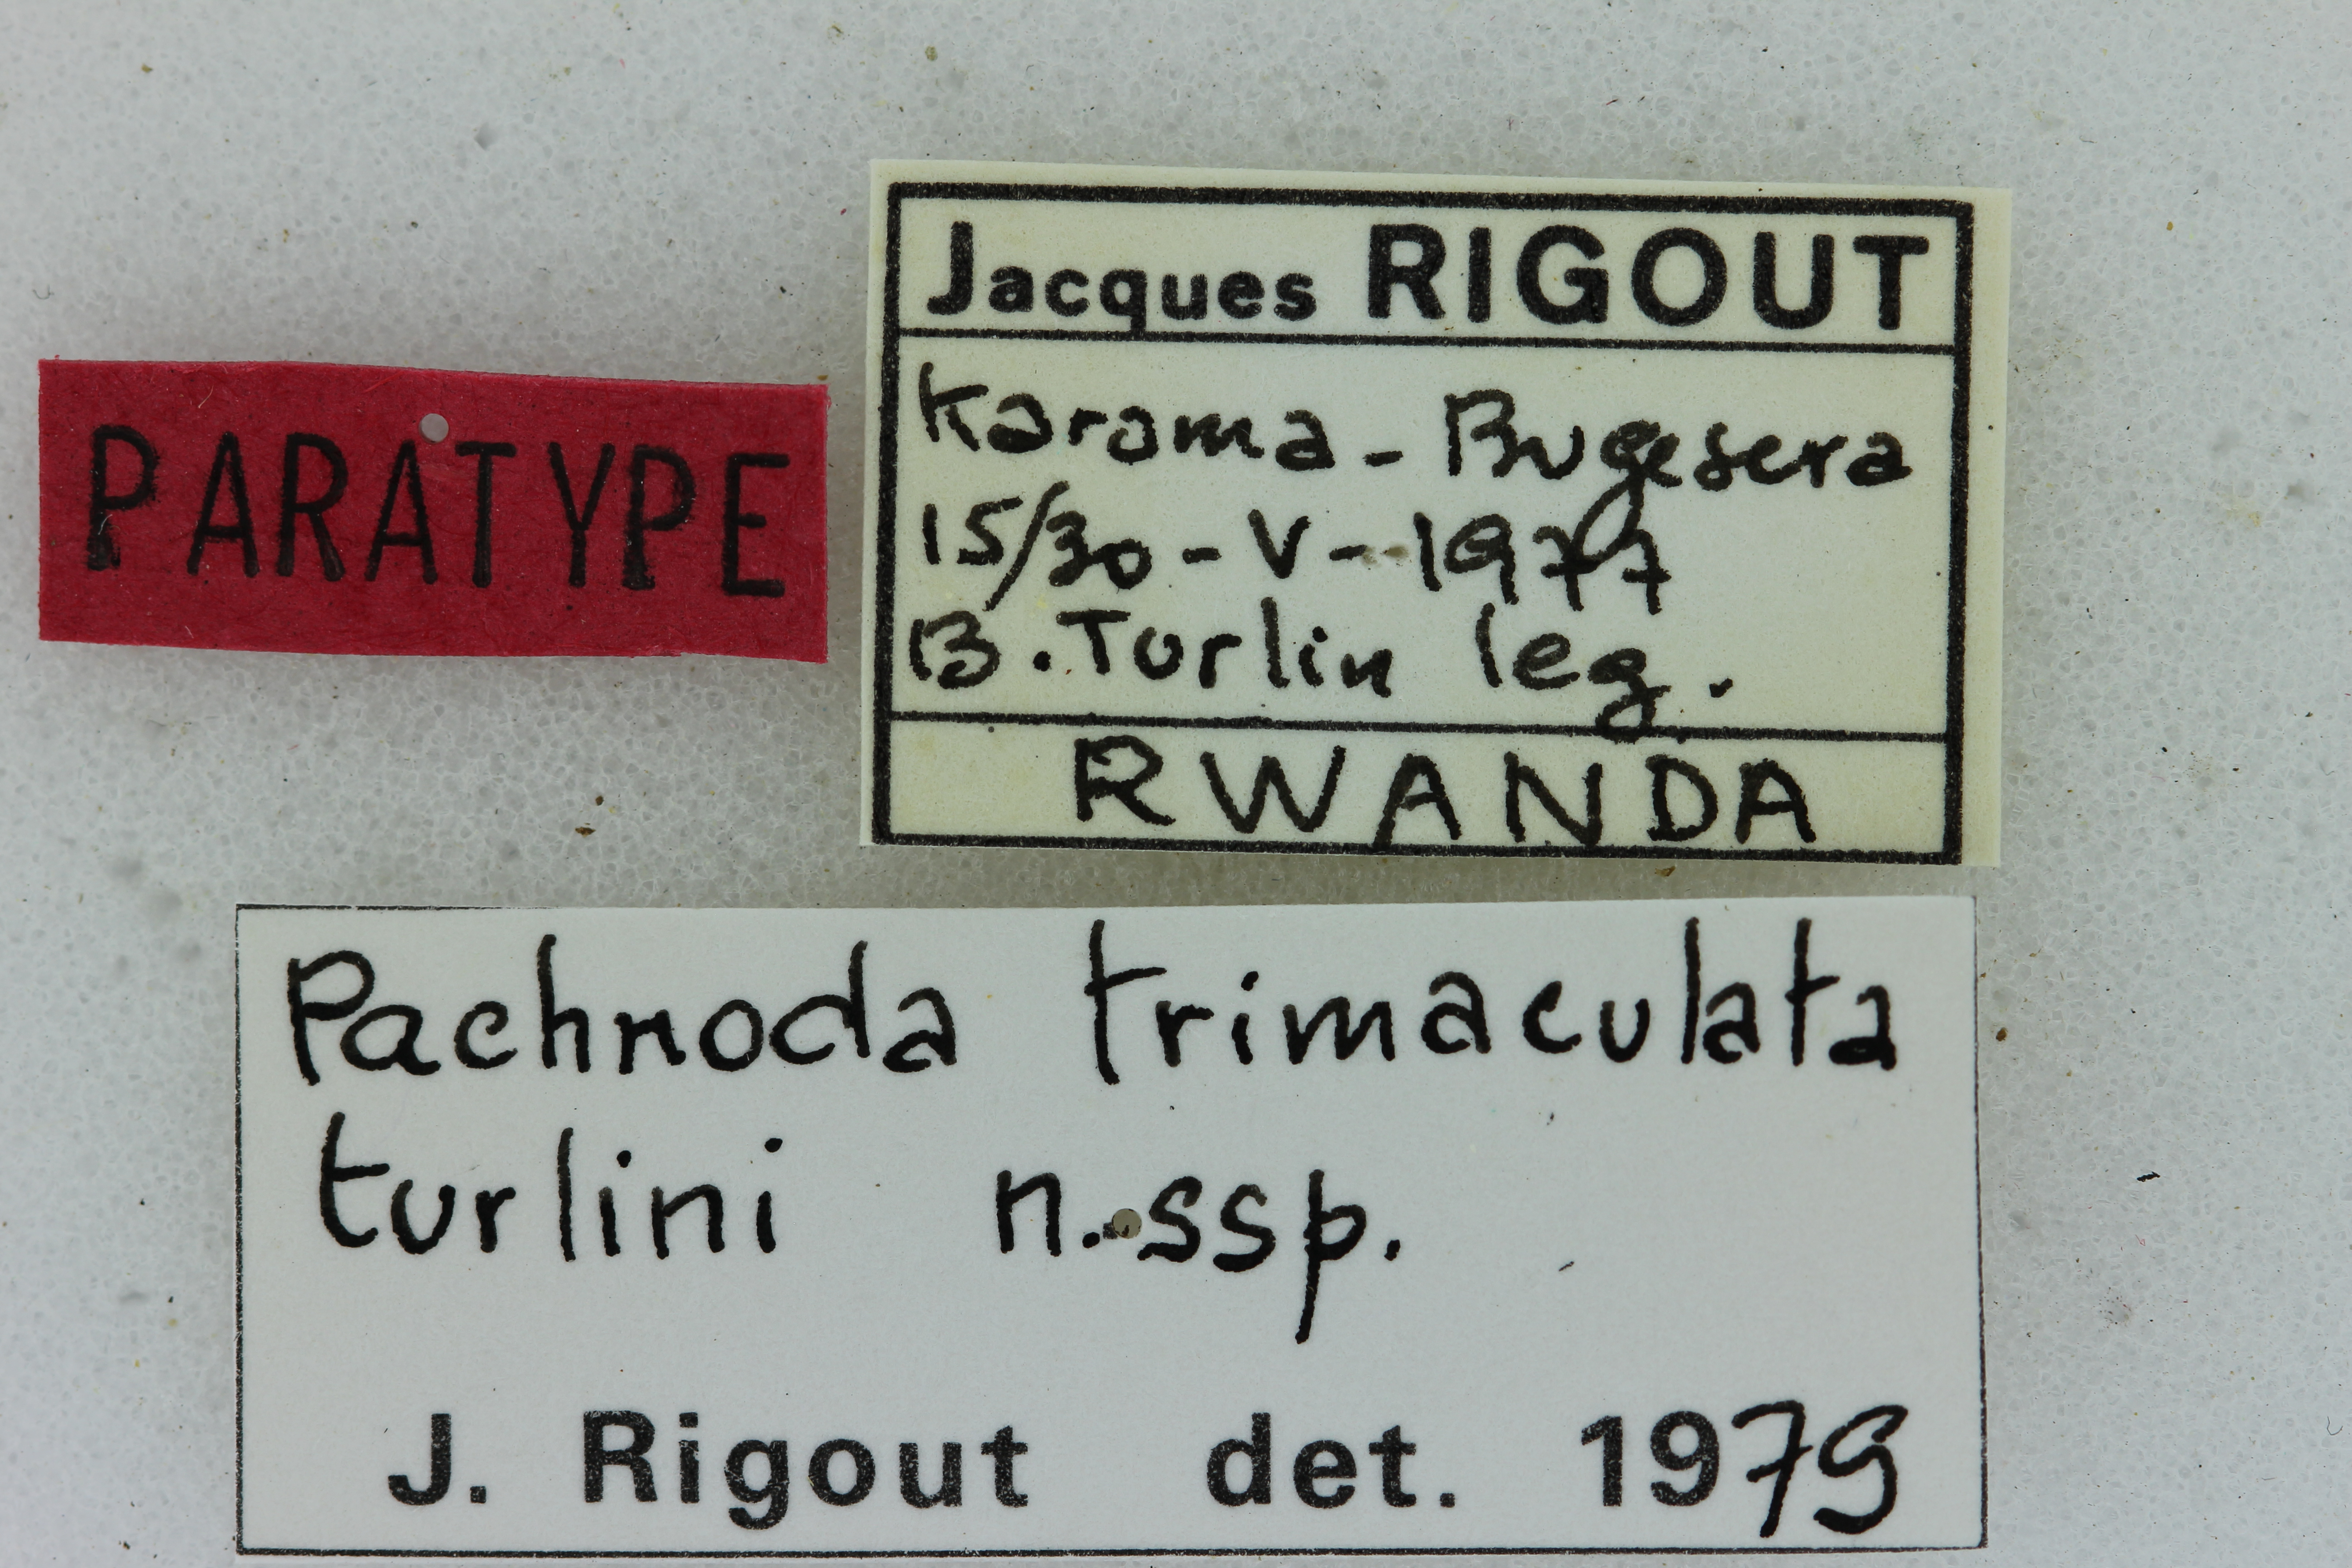 PARATYPE
Jacques RIGOUT
Karama - Bugesera
15/30 - V - 1977
B. Turlin leg.
RWANDA
Pachnoda trimaculata
turlini n. ssp.
J. Rigout det. 1979